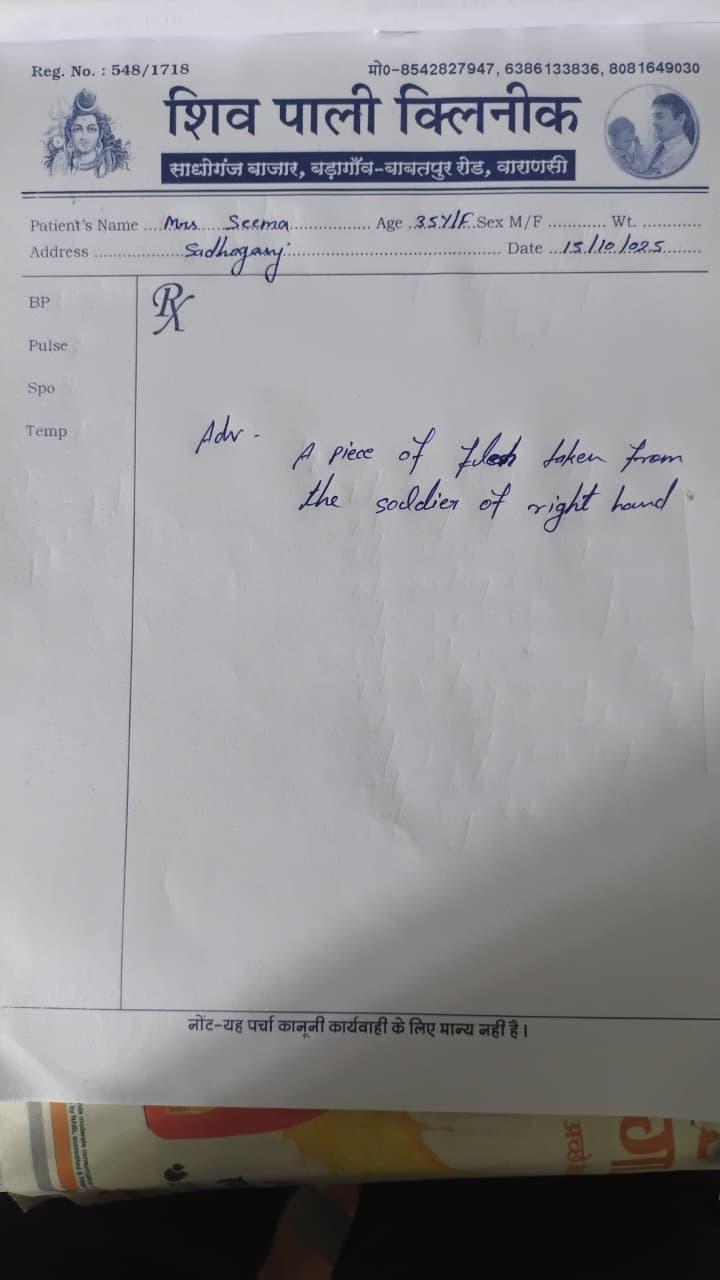 Reg. No. : 548/1718 मो0-8542827947, 6386133836, 8081649030
शिव पाली क्लिनीक
साधोगंज बाजार, बड़ागाँव-बाबतपुर रोड, वाराणसी
Patient's Name ....Mrs. Seema.................. Age .35Y/F.Sex M/F ............ Wt. ............
Address .................Sadhoganj.................................................. Date ...15/10/025........
BP
Pulse
Spo
Temp
Adv - A piece of flesh taken from
the soddier of right hand
नोंट-यह पर्चा कानूनी कार्यवाही के लिए मान्य नहीं है।